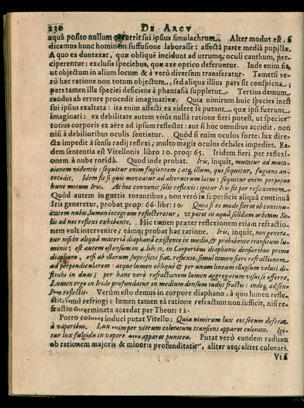 230 DE ARCV
aquâ posito nullum occurrit sui ipsius simulachrum. Alter modus est, si
dicamus hunc hominem suffusione laborasse: affectâ parte mediâ pupillæ.
A quo ea duntaxat, quæ obliquè incidunt ad utrumq; oculi canthum, per-
ciperentur: exclusis speciebus, quæ axe optico deferuntur. Inde enim fit,
ut objectum in alium locum & à vero diversum transferatur. Tametsi ve-
rò hac ratione non totum objectum, sed aliqua illius pars sit conspicua,
pars tamen illa speciei deficiens à phantasia suppletur. Tertius demum
modus ab errore procedit imaginativæ. Quia nimirum huic species inest
sui ipsius exaltata: ita enim affecta ea videre se putant, quæ ipsis fuerunt
imaginati: ex debilitate autem visus nullâ ratione fieri potest, ut species
totius corporis ex aëre ad ipsum reflectatur: aut si hoc omnibus accidit, non
nisi à debilioribus oculis sentiatur. Quòd si enim oculus fortis hæc dire-
ctè impedit à sensu radij reflexi; multo magis oculos debiles impediet. Ea-
dem sententia est Vitellonis libro 10. prop: 65. Iridem fieri per reflexio-
nem à nube roridâ. Quod inde probat. Iris, inquit, movetur ad muta-
tionem videntis: sequitur enim fugientem; atq; illum, qui sequitur, fugiens an-
tecedit. Idem fit si quis moveatur ad alterutrum latus: sequitur enim perpetuo
hunc motum Iris. At hoc convenit solis reflexis: igitur Iris fit per reflexionem.
Quòd autem in guttis rorantibus, non verò in superficie aliquâ continuâ
Iris generetur, probat prop: 66. libr: 10. Quia si eo modo fieret ab conti-
uitatem nubis, lumen integrum reflecteretur, ut patet in aquâ solidam orbem So-
lis ad nos reflexu exhibente. Hic tamen præter reflexionem etiam refractio-
nem vult intervenire; eamq; probat hac ratione. Iris, inquit, non genera-
tur nisi in aliquâ materiâ diaphanâ existente in medio, prohibente transitum lu-
minis: est autem ostensum in 4. lib: 2, in Corporibus diaphanis densioribus primo
diaphano, etsi ab illorum superficie fiat reflexio, simul tamen fieri refractionem,
ad perpendicularem: atque lumen oblique & per unum lineam illapsum volui di-
stractis in duas; per hanc verò refractionem lumen aggregatum visui se offerre.
Lumen ergo in Iride profundatur in medium densum radijs fractis: undeq; ad sen-
sum reflexis. Verùm esto demus in corpore diaphano, à quo lumen refle-
ctitur, simul refringi: lumen tamen eâ ratione refractum non sufficit, nisi re-
fractio determinata accedat per Theor: 12.
Porrò colores induci putat Vitello: Quia nimirum lux eos ferum deferat
à vaporibus. Lux enim per vitrum coloratum transiens apparet colorata. Igi-
tur lux fulgida in vapore novo apparet punicea. Putat verò eundem radium
ob rationem majoris & minoris profunditatis, aliter atq; aliter colorari.
Vis